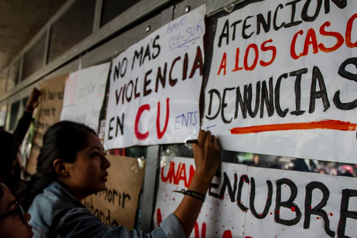 NO MAS
VIOLENCIA
EN CU
ATENCION
A LOS CASOS
DENUNCIAS
UNAM
ENCUBRE
morir